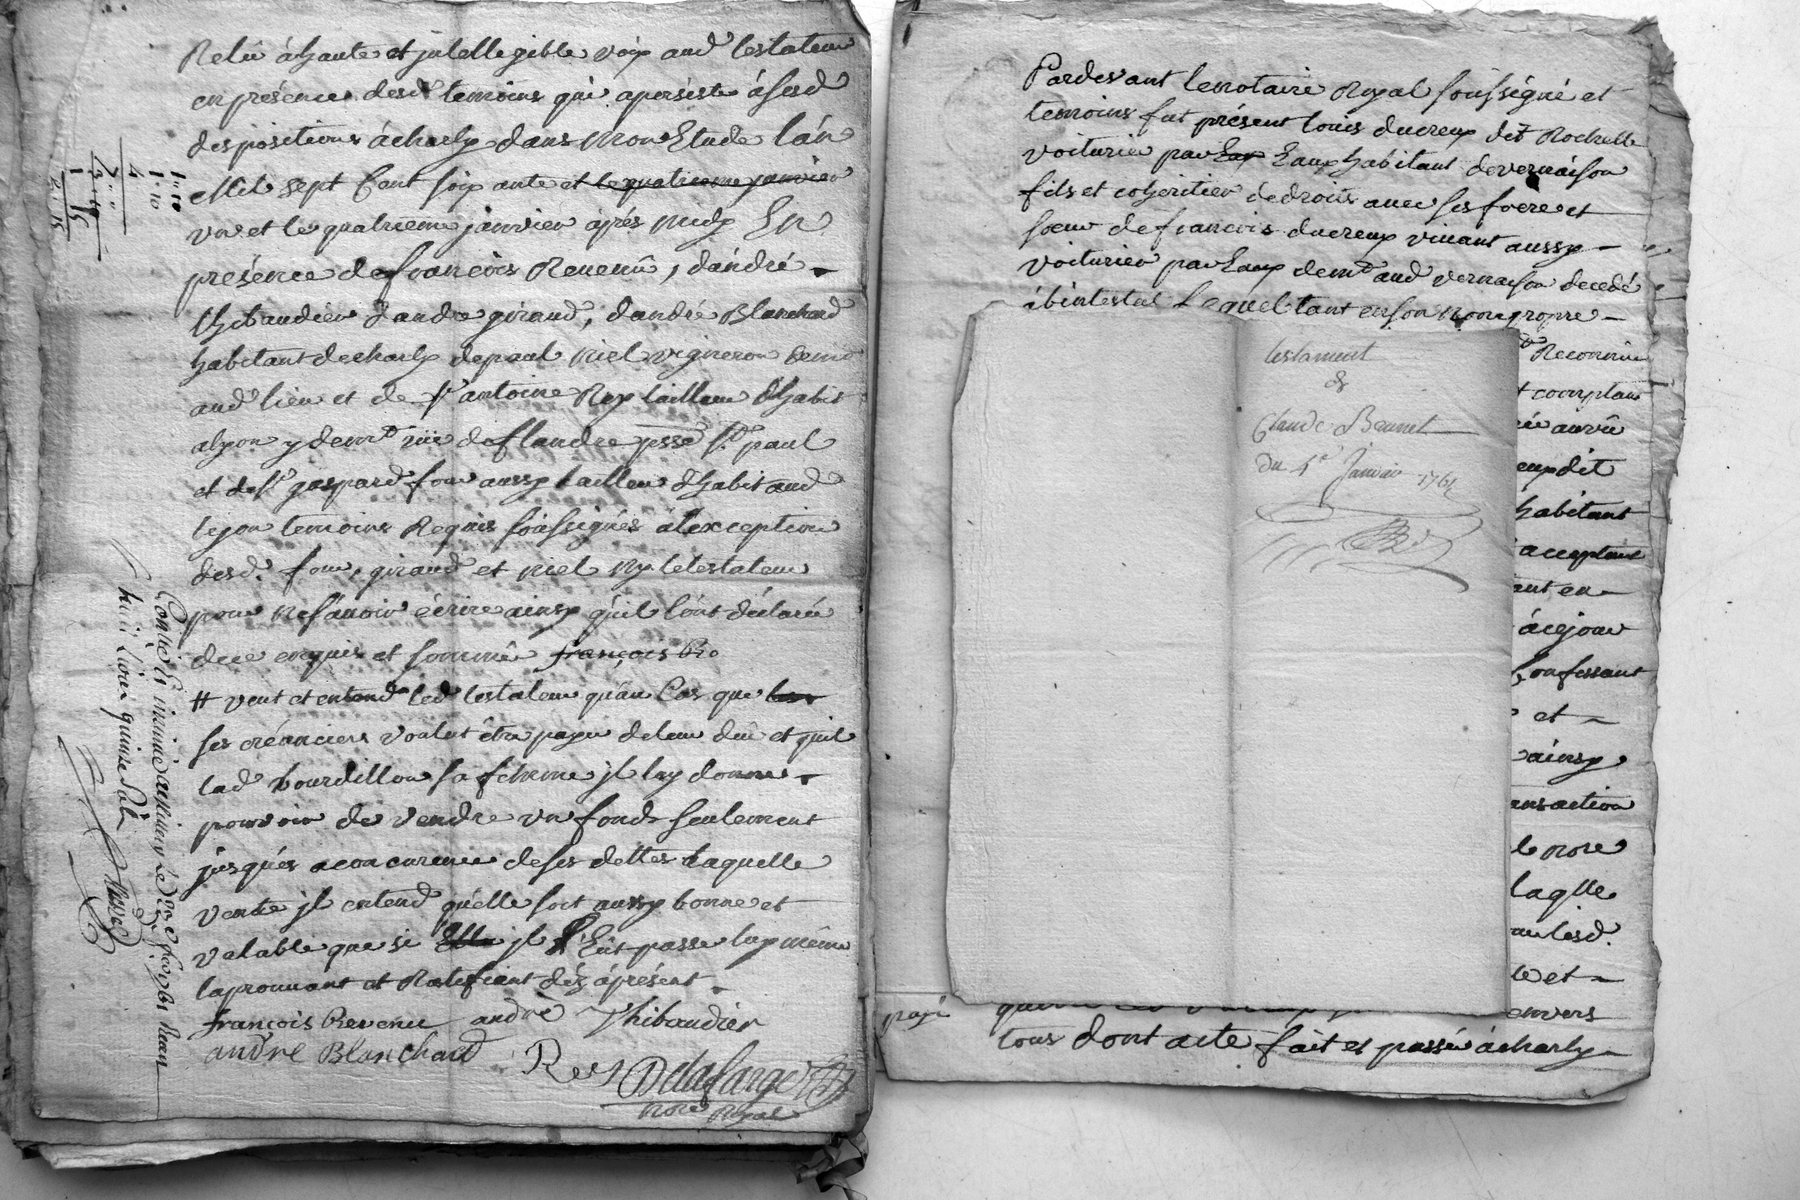 Relû à haute et jntellegible voix aud testateur
en présence desd temoins qui a persisté à sesd
dispositions à charly dans mon Etude l'án
Mil sept Cent soixante et le quatrieme janvier
vn et le quatrieme janvier aprés midy En
présence de françois Revenû, d'andré
thibaudier d'andre giraud, d'andré Blanchard
habitant de charly de paul niel vigneron demt
aud lieu et de sr antoine Rey tailleur d'habit
a lyon y demt rüe de flandre psse st paul
et de sr gaspard four aussy tailleur d'habit aud
lyon temoins Requis soussignés à l'exception
desd. four, giraud et niel ny le testateur
pour ne sçavoir écrire ainsy qu'il l'ont déclaré
de ce enquis et sommé françois Re
# veut et entend led testateur qu'au Cas que les
ses créanciers voulut être payé de leur dû et qu'il
lad bourdillon sa feme jl luy donne
pouvoir de vendre vn fond seulement
jusqués a concurence de ses dettes laquelle
vente jl entend qu'elle soit aussy bonne et
valable que si Elle jl l'Eut passé luy même
laprouvant et Ratifiant déz à présent
françois Revenu andré Thibaudier
andré Blanchard Rey Delafarge
Nore Royal
Contlé et insinué
huit Livres quinze Sols
1" 10
1" 10
4
Pardevant le notaire Royal soussigné et
temoins fut présent louis ducreux dit Rochette
voiturier par Eau Eaux habitant de vernaison
fils et coheritier de droits avec ses frere et
soeur de françois ducreux vivant aussy
voiturier par Eaux demt aud vernaison decedé
ábintestat Lequel tant en son nom propre
testament
de
Claude Bounet
du 4e Janvier 1761
Reconnu
comptant
eux dit
habitant
acceptant
ant en
à ce jour
Confessant
et
ainsy
ansaction
le nore
laqlle
au lesd.
le et
envers
payé
tous dont acte fait et passé à charly